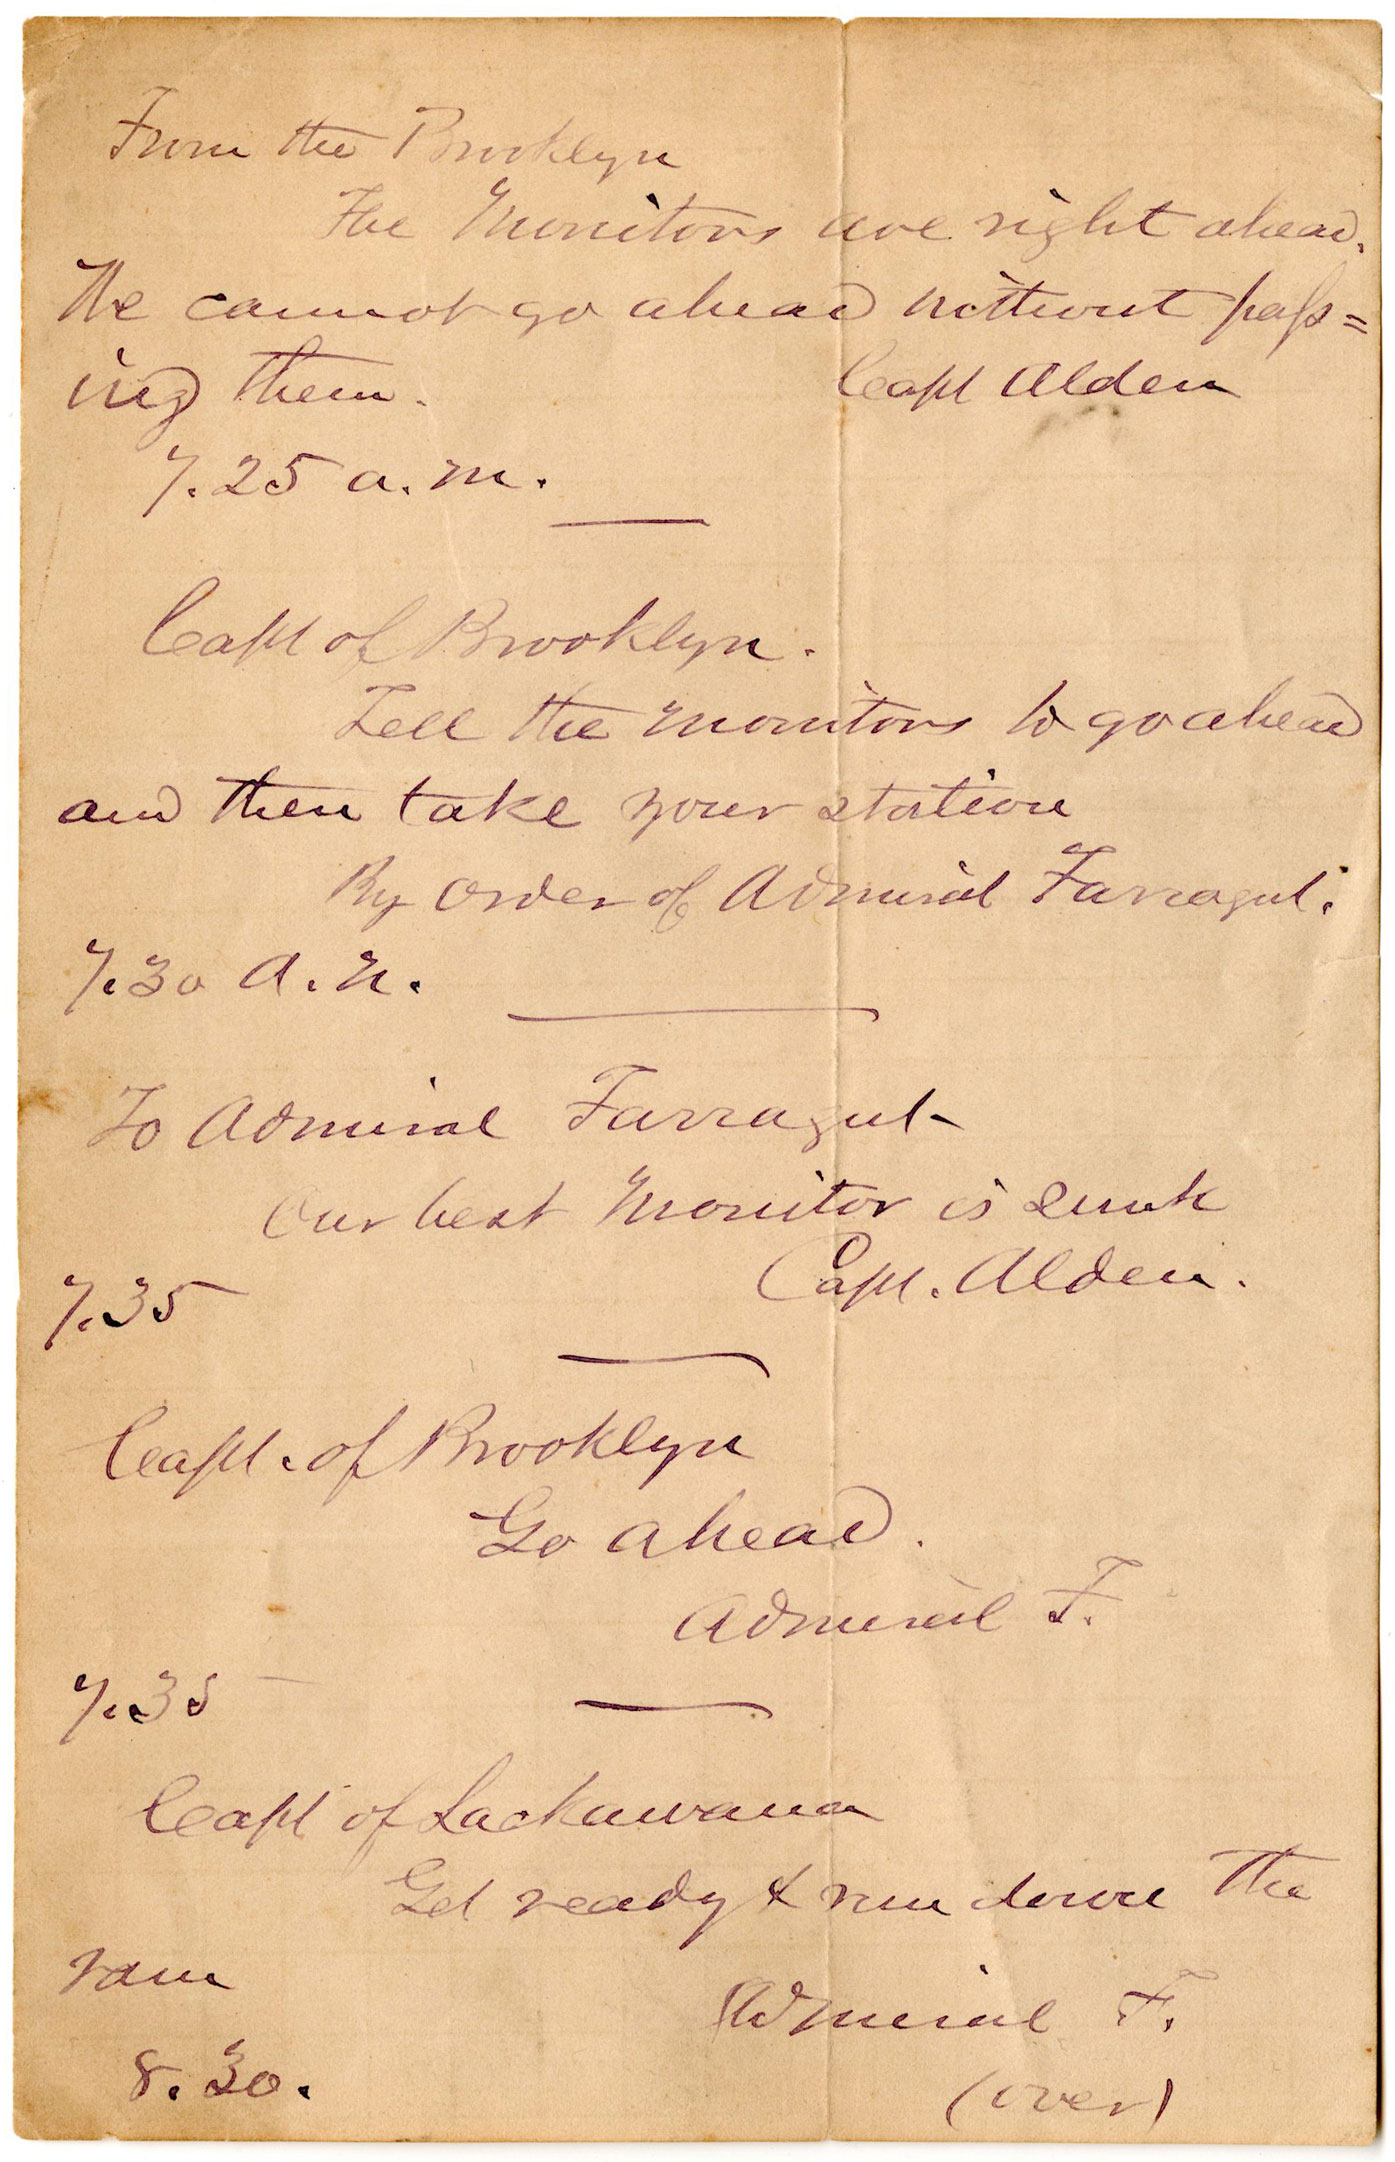 From the Brooklyn
The Monitors are right ahead.
We cannot go ahead without pass=
ing them. Capt Alden
7.25 a.m.
Capt of Brooklyn.
Tell the monitors to go ahead
and then take your station
By order of Admiral Farragut.
7.30 A.M.
To Admiral Farragut
Our best Monitor is sunk
Capt. Alden.
7.35
Capt. of Brooklyn
Go ahead.
Admiral F.
7.35
Capt of Lackawana
Get ready & run down the
ram
Admiral F.
8.30.
(over)